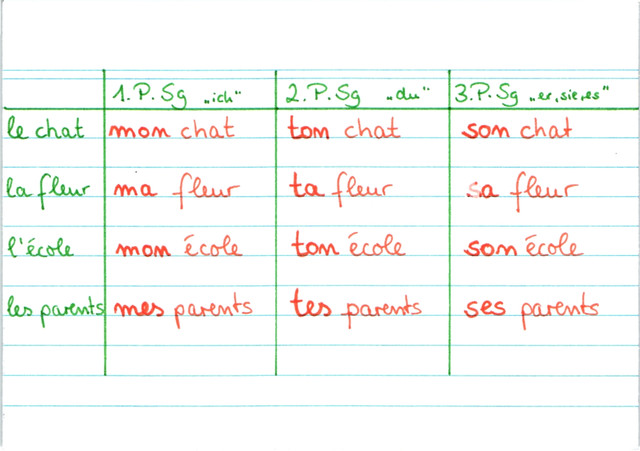 1. P. Sg „ich" 2. P. Sg „du" 3. P. Sg „er, sie, es"
le chat mon chat ton chat son chat
la fleur ma fleur ta fleur sa fleur
l'école mon école ton école son école
les parents mes parents tes parents ses parents